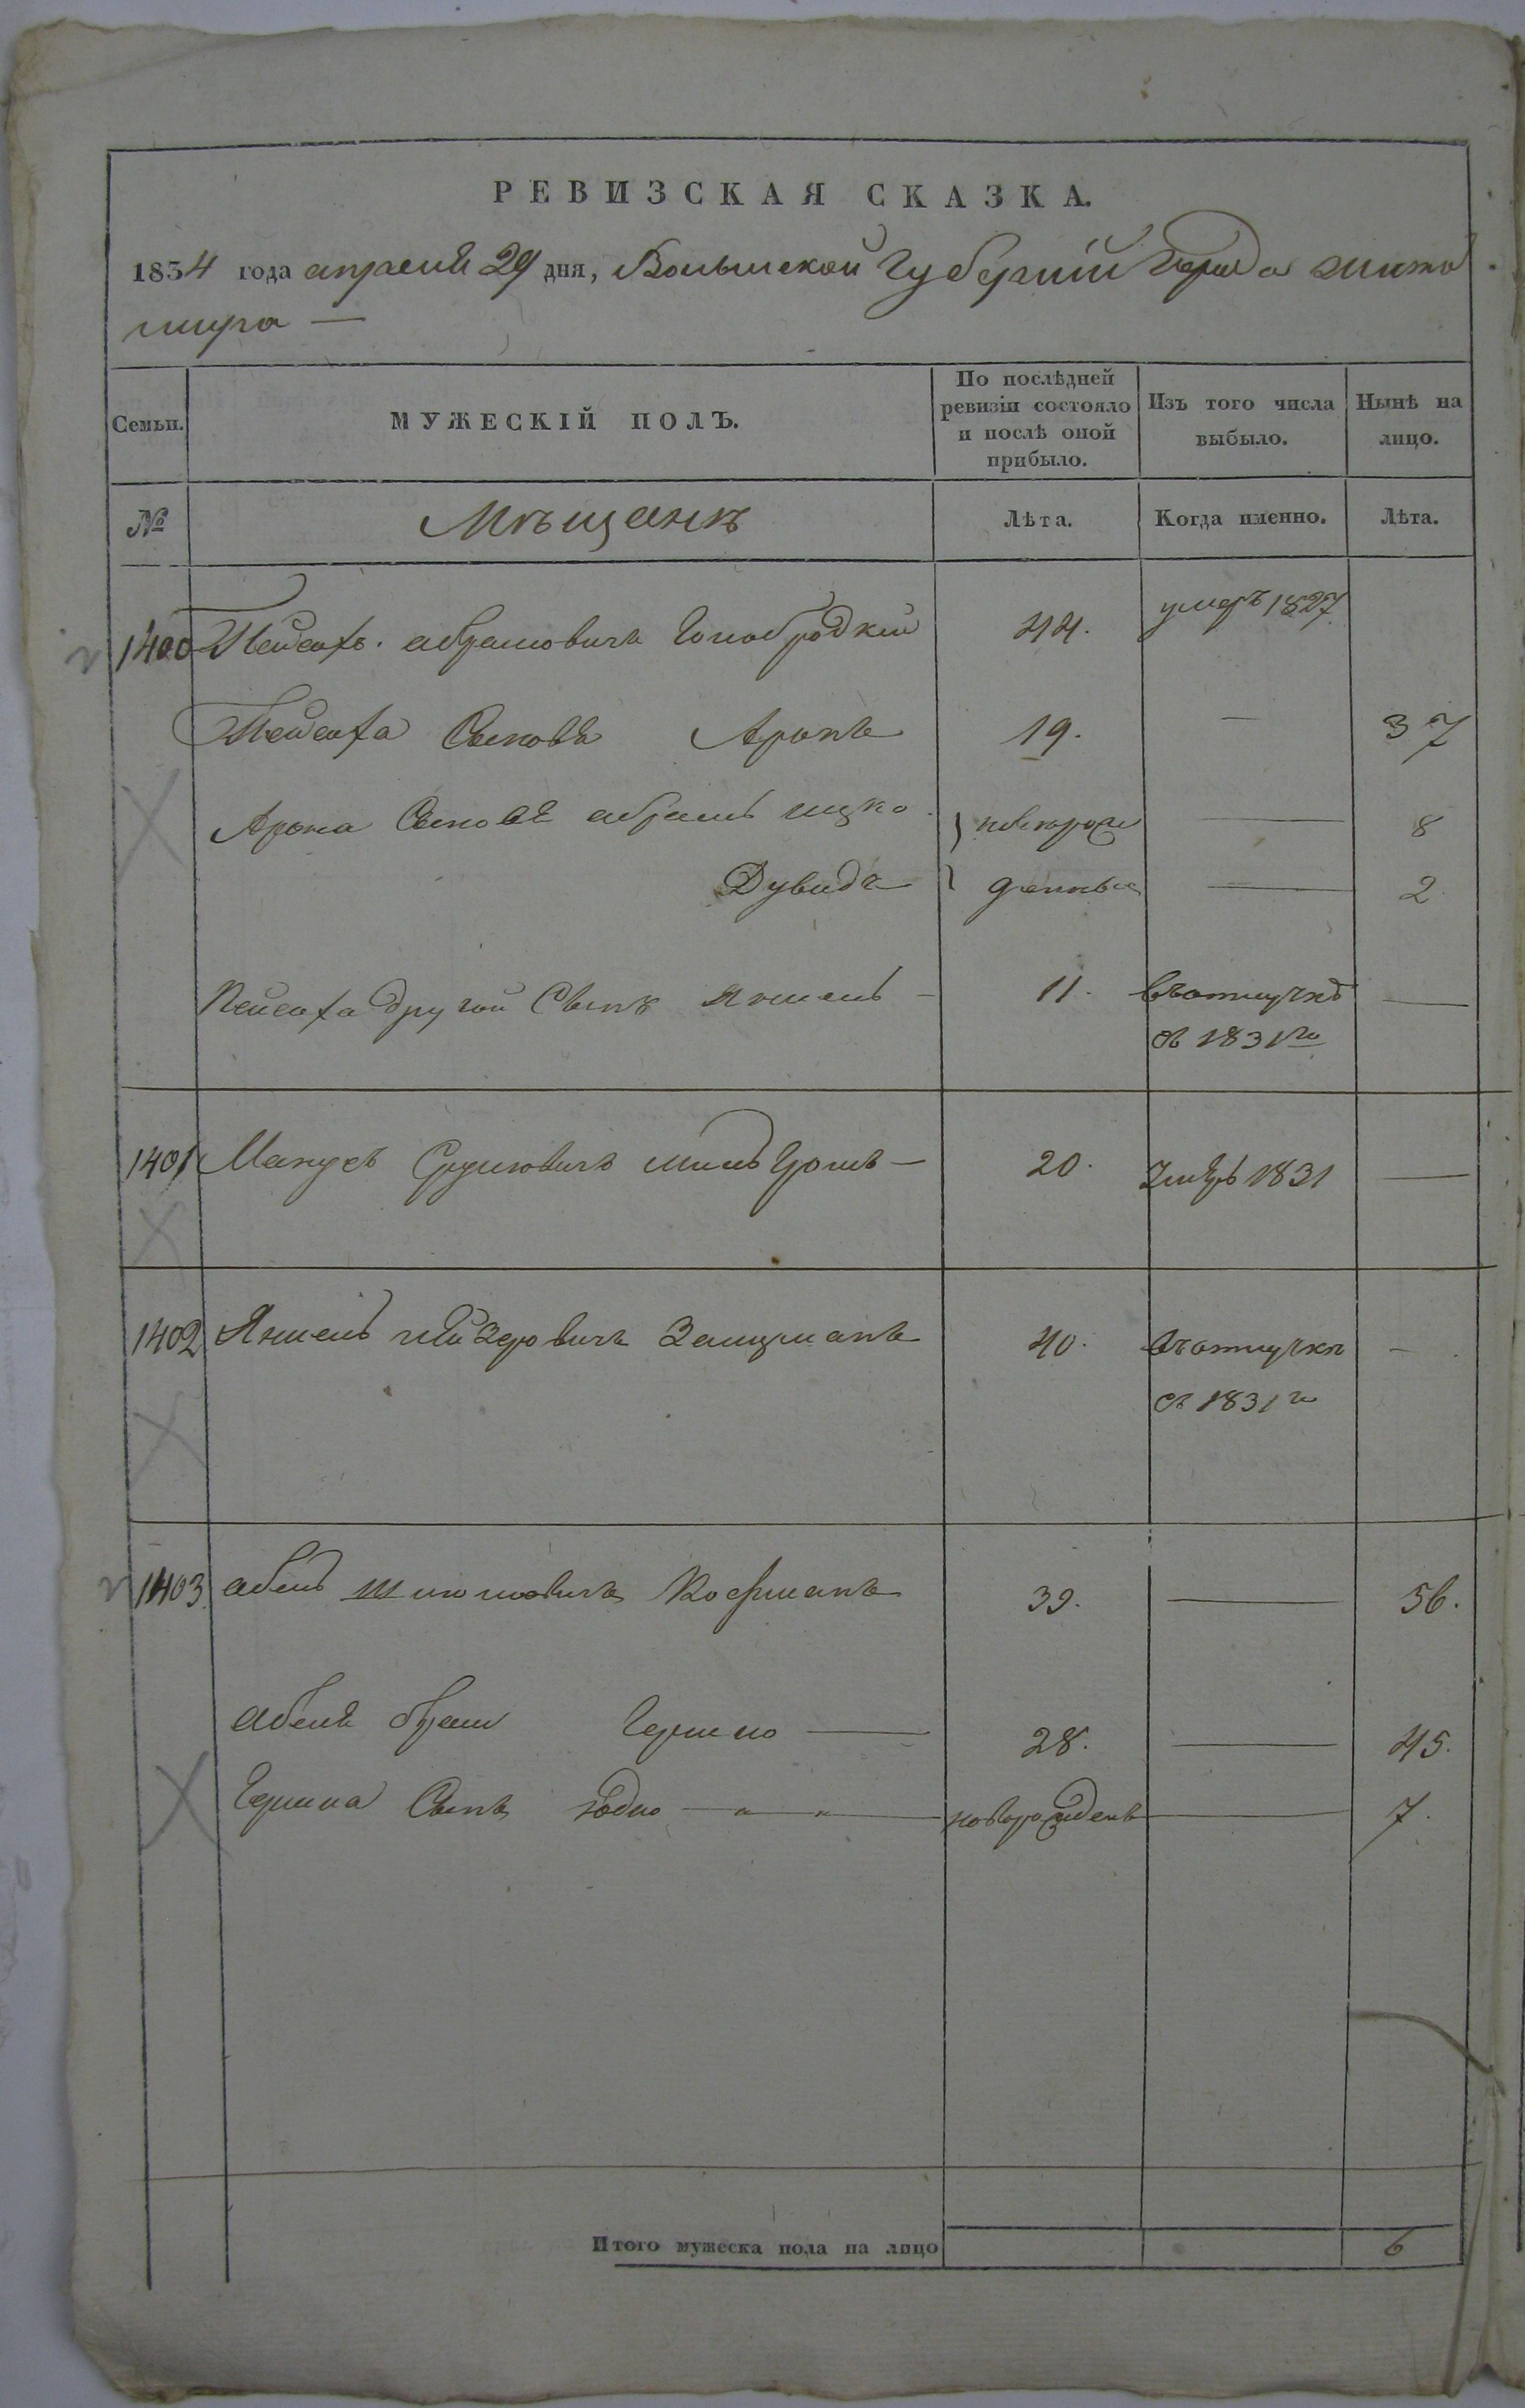 РЕВИЗСКАЯ СКАЗКА.
1834 года апреля 29 дня, Волынской Губерніи города Жито
мира —
Семьи.
МУЖЕСКІЙ ПОЛЪ.
По послѣдней
ревизіи состояло
и послѣ оной
прибыло.
Изъ того числа
выбыло.
Нынѣ на
лицо.
№
Мѣщанъ
Лѣта.
Когда именно.
Лѣта.
1400 Пейсахъ абрамовичъ 44. умеръ 1827
Пейсаха Сыновья Аронъ 19. — 37
Арона Сыновья абрамъ ицко новорож — 8
Дувидъ денные — 2
Пейсаха другой Сынъ Янкель — 11. въ отлучкѣ —
съ 1831го
1401 Манусъ Сруловичъ — 20. 1831 —
1402 Янкель Лейзеровичъ Залцманъ 40. въ отлучкѣ —
съ 1831го
1403 абель Шмулевичъ Кофманъ 39. — 56.
абеля братъ Гершко — 28. — 45.
Гершка Сынъ Юдко — новорожденъ — 7.
Итого мужеска пола на лицо 6